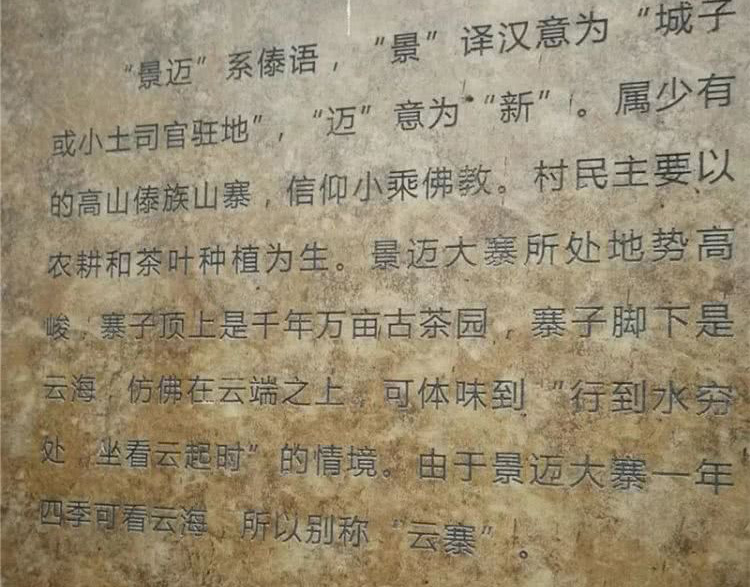 “景迈”系傣语，“景”译汉意为“城子
或小土司官驻地”，“迈”意为“新”。属少有
的高山傣族山寨，信仰小乘佛教。村民主要以
农耕和茶叶种植为生。景迈大寨所处地势高
峻，寨子顶上是千年万亩古茶园，寨子脚下是
云海，仿佛在云端之上，可体味到“行到水穷
处，坐看云起时”的情境。由于景迈大寨一年
四季可看云海，所以别称“云寨”。